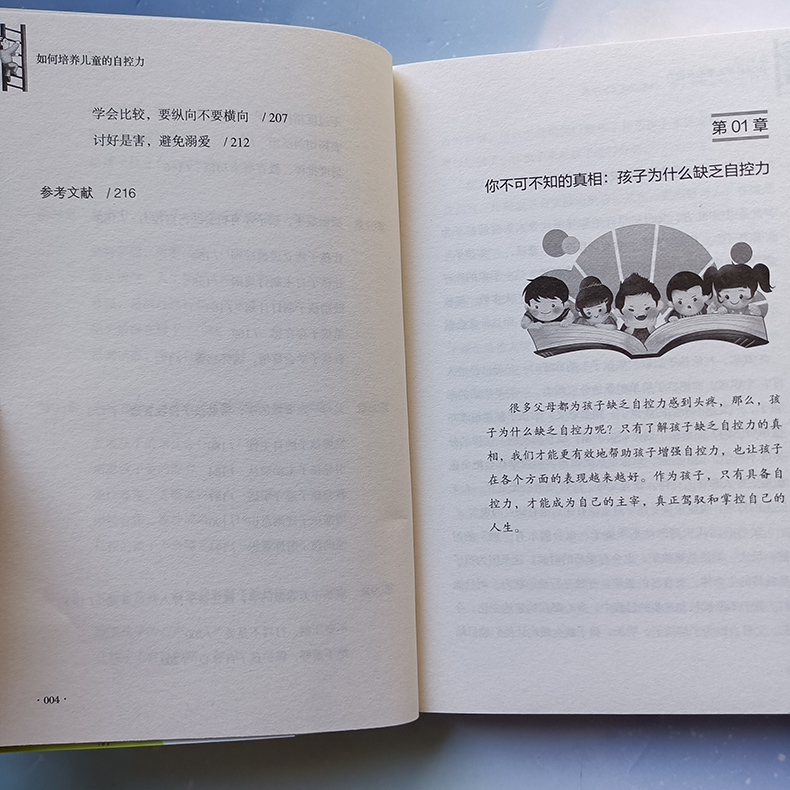 如何培养儿童的自控力
学会比较，要纵向不要横向 /207
讨好是害，避免溺爱 /212
参考文献 /216
·004·
第01章
你不可不知的真相：孩子为什么缺乏自控力
很多父母都为孩子缺乏自控力感到头疼，那么，孩
子为什么缺乏自控力呢？只有了解孩子缺乏自控力的真
相，我们才能更有效地帮助孩子增强自控力，也让孩子
在各个方面的表现越来越好。作为孩子，只有具备自
控力，才能成为自己的主宰，真正驾驭和掌控自己的
人生。